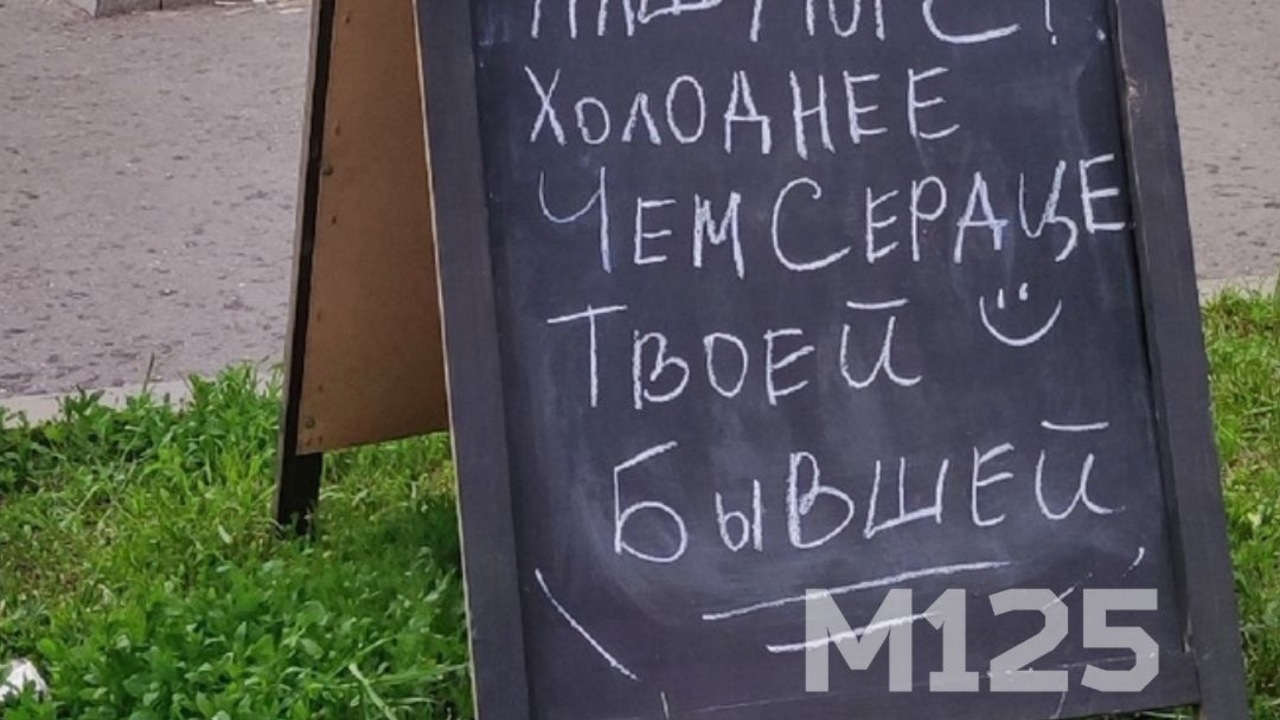 НАШ МОРС!
ХОЛОДНЕЕ
ЧЕМ СЕРДЦЕ
ТВОЕЙ
БЫВШЕЙ
M125